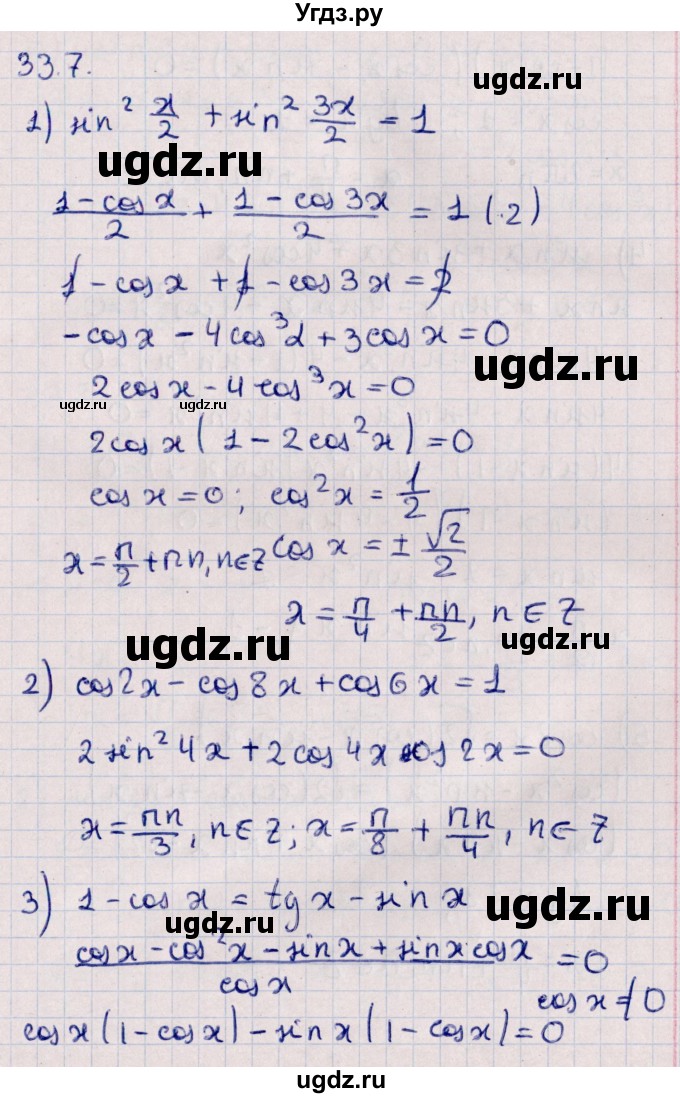 Угдз.ру
33.7.
1) sin² x/2 + sin² 3x/2 = 1
ugdz.ru
(1 - cos x)/2 + (1 - cos 3x)/2 = 1 (·2)
1 - cos x + 1 - cos 3x = 2
-cos x - 4 cos³ α + 3 cos x = 0
ugdz.ru
2 cos x - 4 cos³ x = 0
ugdz.ru ugdz.ru
2cos x (1 - 2cos² x) = 0
cos x = 0; cos² x = 1/2
x = π/2 + πn, n∈Z cos x = ± √2/2
x = π/4 + πn/2, n ∈ Z
ugdz.ru ugdz.ru
2) cos 2x - cos 8x + cos 6x = 1
2 sin² 4x + 2 cos 4x cos 2x = 0
x = πn/3, n ∈ Z; x = π/8 + πn/4, n ∈ Z
3) 1 - cos x = tg x - sin x
ugdz.ru ugdz.ru
(cos x - cos² x - sin x + sin x cos x)/cos x = 0
cos x ≠ 0
cos x (1 - cos x) - sin x (1 - cos x) = 0
ugdz.ru